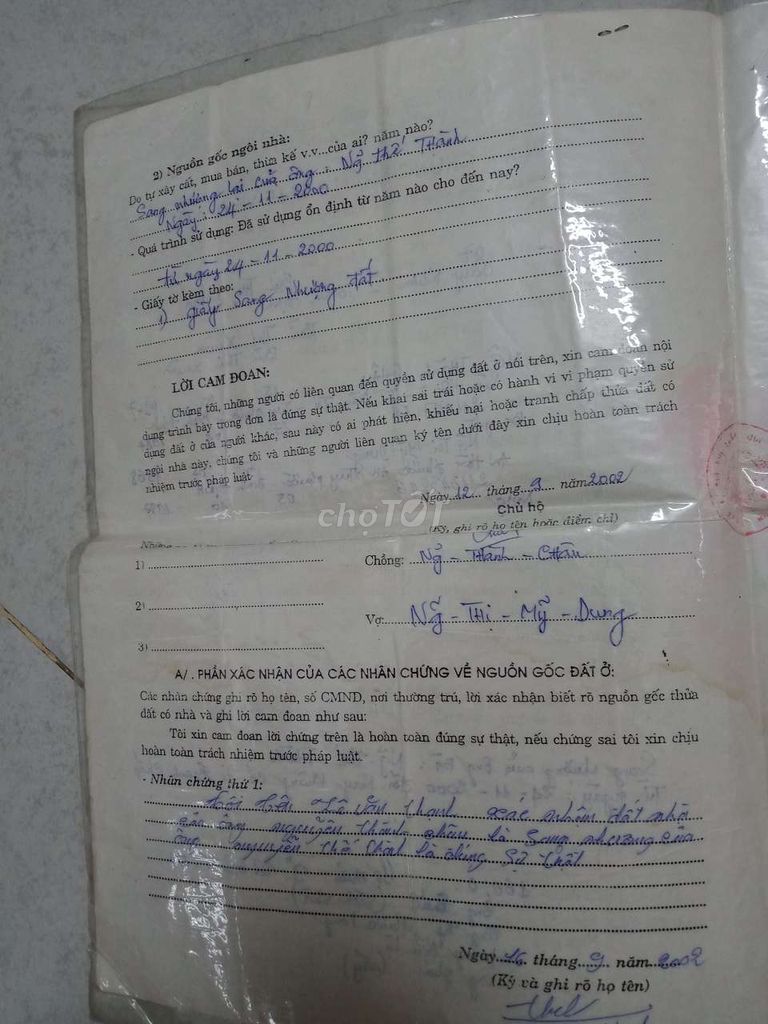 2) Nguồn gốc ngôi nhà:
Do tự xây cất, mua bán, thừa kế v.v...của ai? năm nào?
Sang nhượng lại của ông: Ng̃ Thế Thành
Ngày: 24 - 11 - 2000
- Quá trình sử dụng: Đã sử dụng ổn định từ năm nào cho đến nay?
từ ngày 24 - 11 - 2000
- Giấy tờ kèm theo:
1) giấy Sang Nhượng đất
LỜI CAM ĐOAN:
Chúng tôi, những người có liên quan đến quyền sử dụng đất ở nói trên, xin cam đoan nội
dung trình bày trong đơn là đúng sự thật. Nếu khai sai trái hoặc có hành vi vi phạm quyền sử
dụng đất ở của người khác, sau này có ai phát hiện, khiếu nại hoặc tranh chấp thửa đất có
ngôi nhà này, chúng tôi và những người liên quan ký tên dưới đây xin chịu hoàn toàn trách
nhiệm trước pháp luật
Ngày 12 tháng 9 năm 2002
Chủ hộ
(Ký, ghi rõ họ tên hoặc điểm chỉ)
choTỐT
1) Chồng: Ng̃ - Thành - Châu
2) Vợ: Ng̃ - Thị - Mỹ - Dung
3)
A/. PHẦN XÁC NHẬN CỦA CÁC NHÂN CHỨNG VỀ NGUỒN GỐC ĐẤT Ở:
Các nhân chứng ghi rõ họ tên, số CMND, nơi thường trú, lời xác nhận biết rõ nguồn gốc thửa
đất có nhà và ghi lời cam đoan như sau:
Tôi xin cam đoan lời chứng trên là hoàn toàn đúng sự thật, nếu chứng sai tôi xin chịu
hoàn toàn trách nhiệm trước pháp luật.
- Nhân chứng thứ 1:
Tôi tên Lê Văn Thạnh xác nhận đất nhà
của ông nguyễn thành châu là Sang nhượng của
ông nguyễn thế là đúng Sự thật
Ngày 16 tháng 9 năm 2002
(Ký và ghi rõ họ tên)